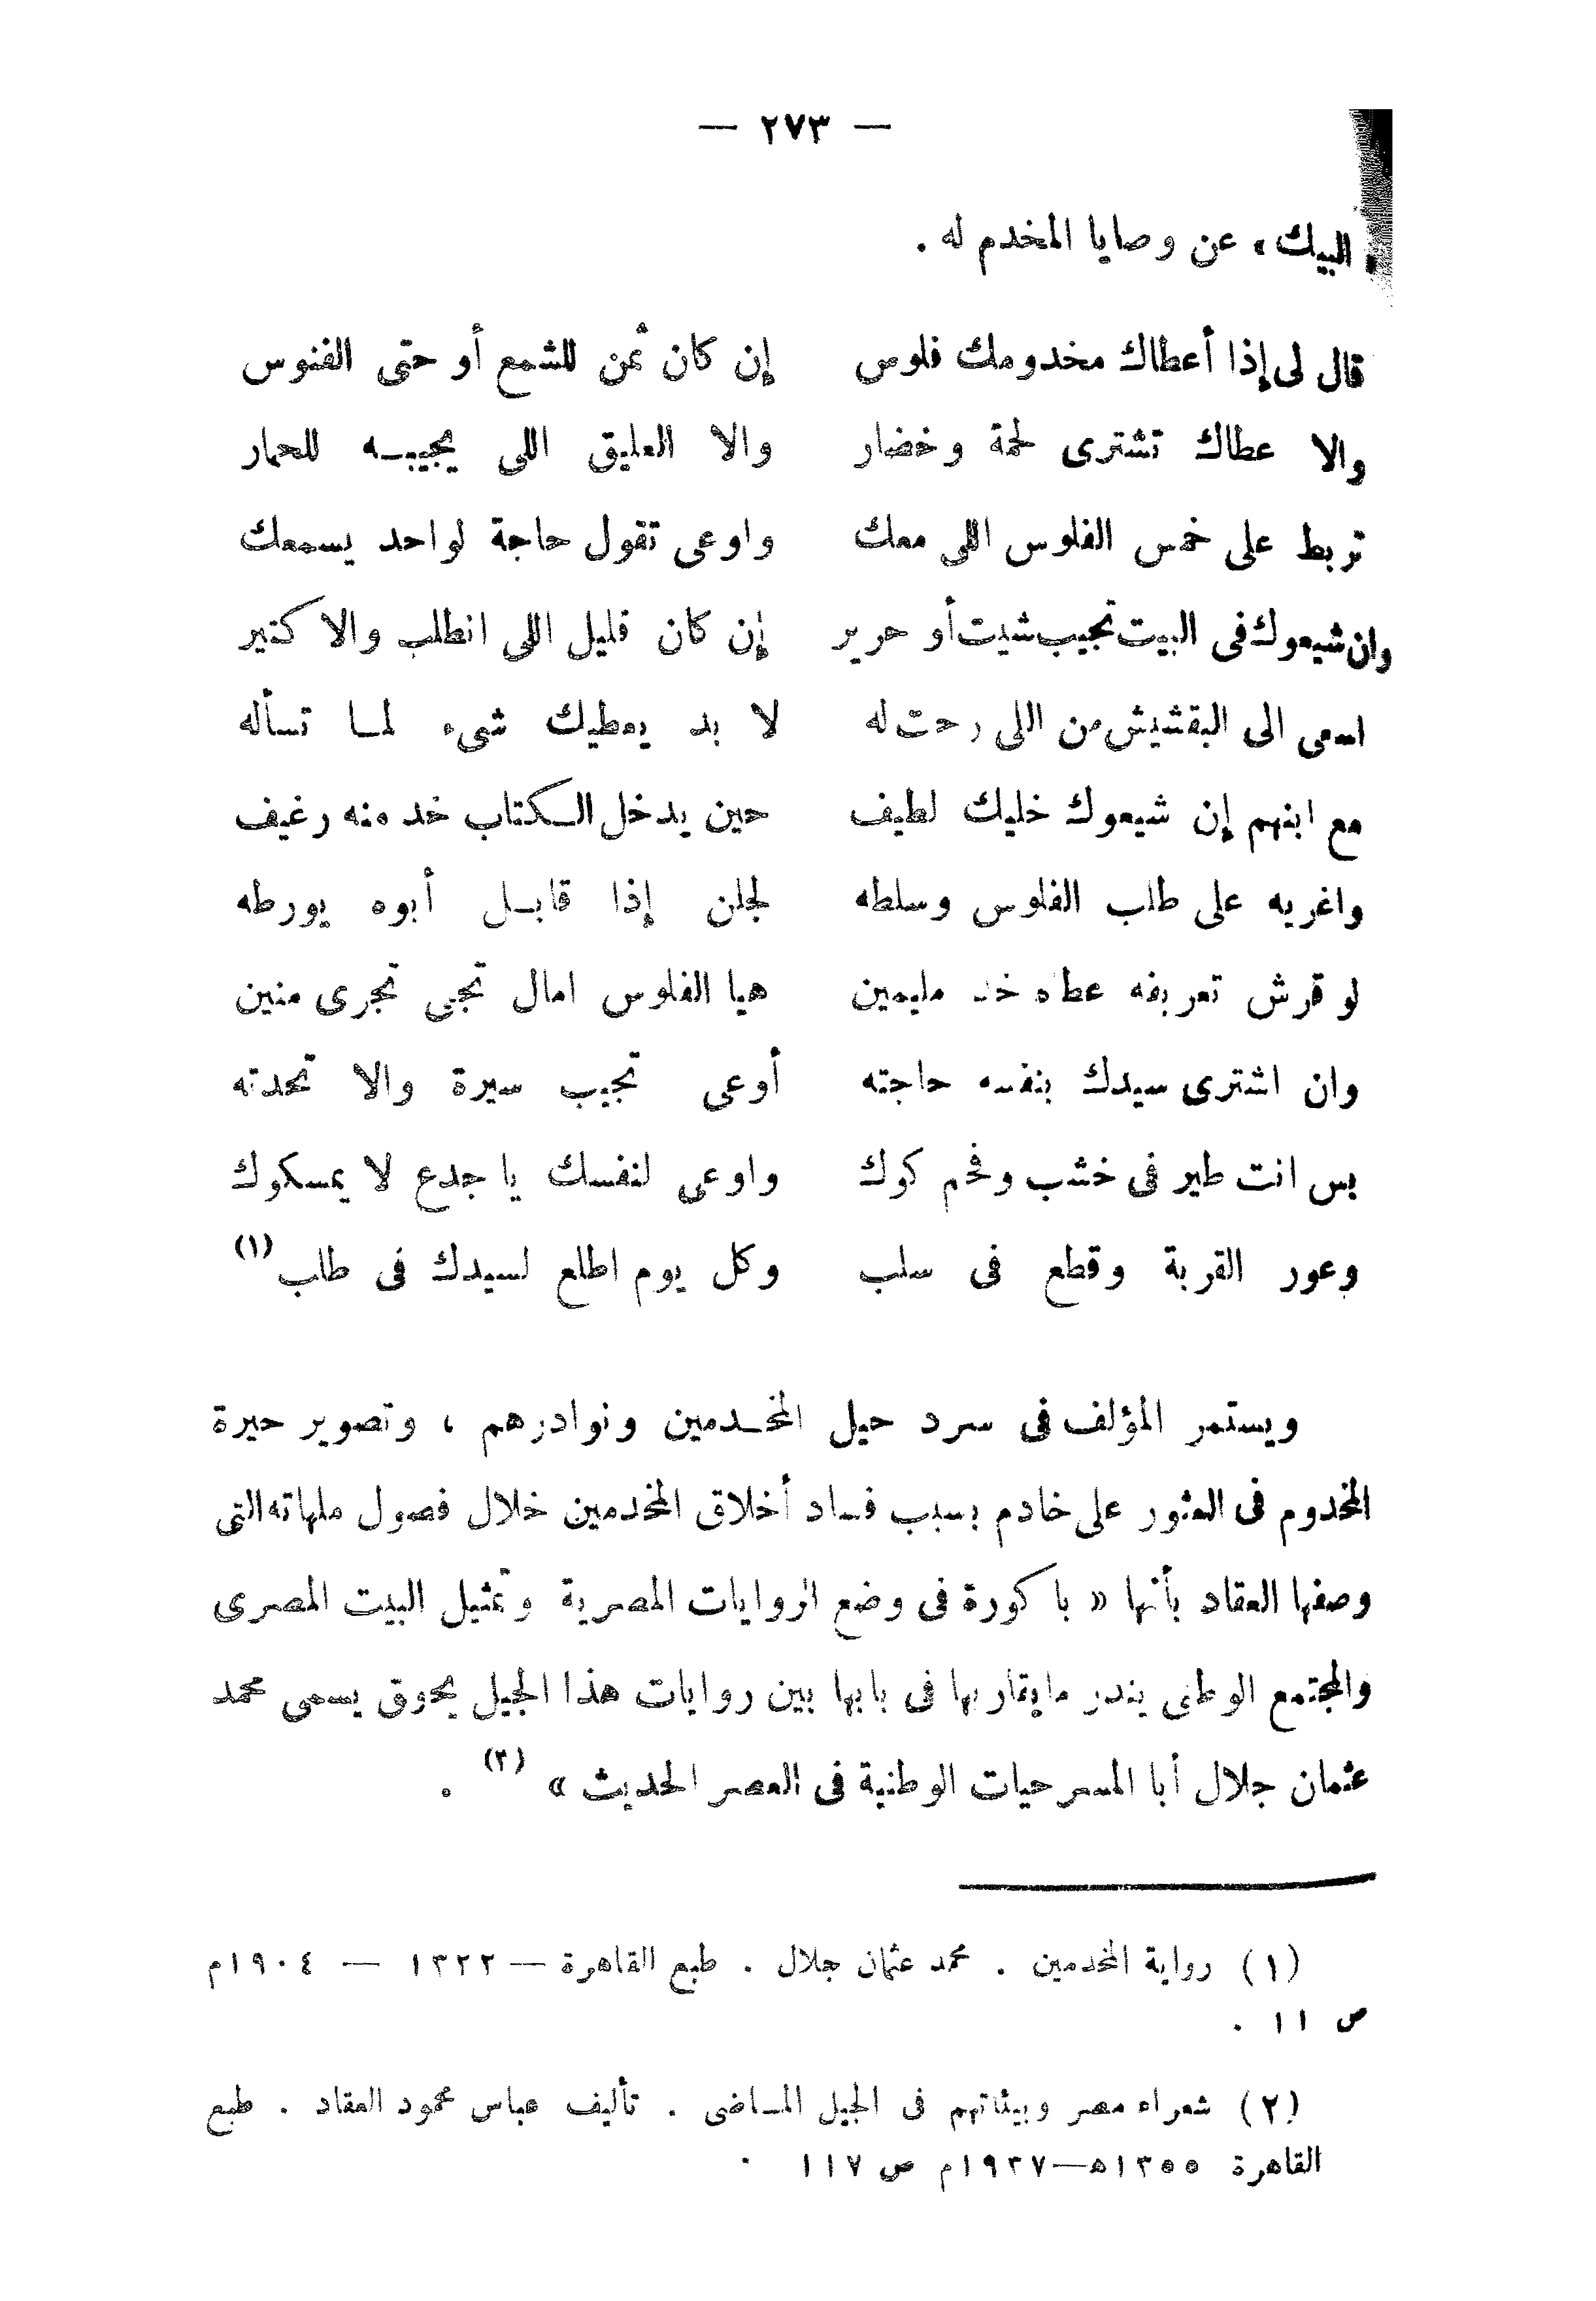 — ٢٧٣ —
البيك » عن وصايا المخدم له .
قال لى إذا أعطاك مخدومك فلوس إن كان ثمن للشمع أو حتى الفنوس
والا عطاك تشترى لحمة وخضار والا العليق اللى يجيبه للحمار
تربط على خمس الفلوس اللى معك واوعى تقول حاجة لواحد يسمعك
وان شيعوك فى البيت تجيب شيت أو حرير إن كان قليل اللى انطلب والا كتير
اسعى الى البقشيش من اللى رحت له لا بد يعطيك شىء لما تسأله
مع ابنهم إن شيعوك خليك لطيف حين يدخل الكتاب خد منه رغيف
واغريه على طلب الفلوس وسلطه لجلن إذا قابل أبوه يورطه
لو قرش تعريفه عطاه خد مليمين هيا الفلوس امال تجى تجرى منين
وان اشترى سيدك بنفسه حاجته أوعى تجيب سيرة والا تحدته
بس انت طير فى خشب وفحم كوك واوعى لنفسك يا جدع لا يمسكوك
وعور القربة وقطع فى سلب وكل يوم اطلع لسيدك فى طلب (١)
ويستمر المؤلف فى سرد حيل المخدمين ونوادرهم ، وتصوير حيرة
المخدوم فى العثور على خادم بسبب فساد أخلاق المخدمين خلال فصول ملهاته التى
وصفها العقاد بأنها « باكورة فى وضع الروايات المصرية وتمثيل البيت المصرى
والمجتمع الوطنى يندر مايقاربها فى بابها بين روايات هذا الجيل بحق يسمى محمد
عثمان جلال أبا المسرحيات الوطنية فى العصر الحديث » (٢) .
(١) رواية المخدمين . محمد عثمان جلال . طبع القاهرة — ١٣٢٢ — ١٩٠٤م
ص ١١ .
(٢) شعراء مصر وبيئاتهم فى الجيل الماضى . تأليف عباس محمود العقاد . طبع
القاهرة ١٣٥٥ه—١٩٣٧م ص ١١٧ .